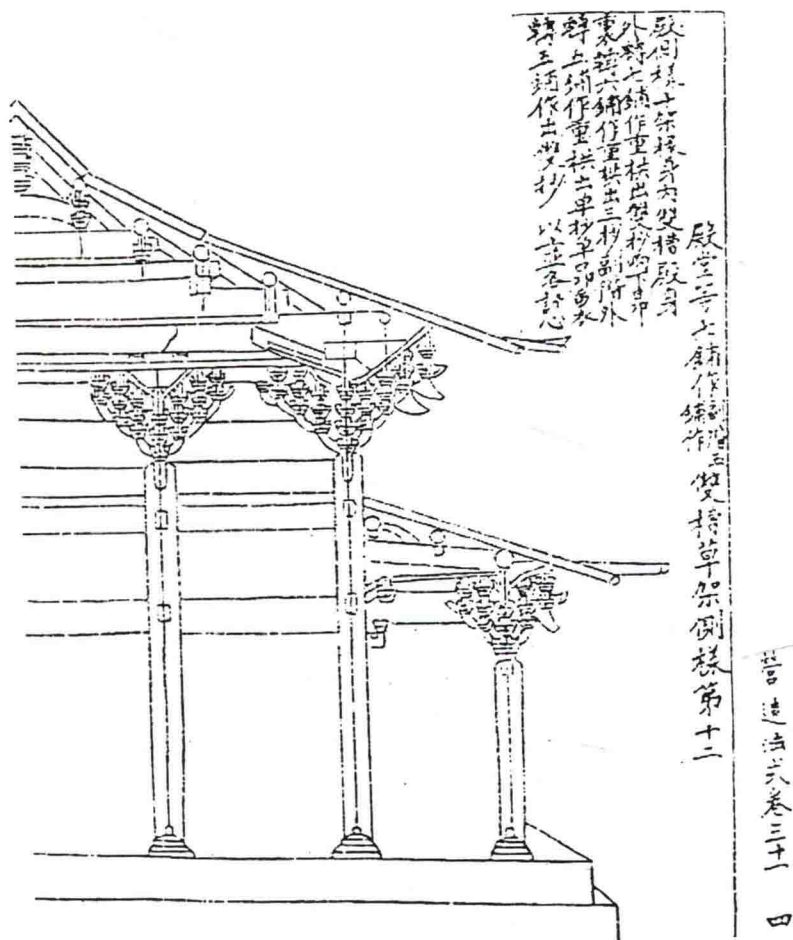 營造法式卷三十一 四
殿堂等七鋪作副階五鋪作雙槽草架側樣第十二
殿側樣十架椽身內雙槽殿身
外轉七鋪作重栱出雙抄兩下昂
裏轉六鋪作重栱出三抄副階外
轉五鋪作重栱出單抄單昂裏
轉五鋪作出雙抄 以上並各計心